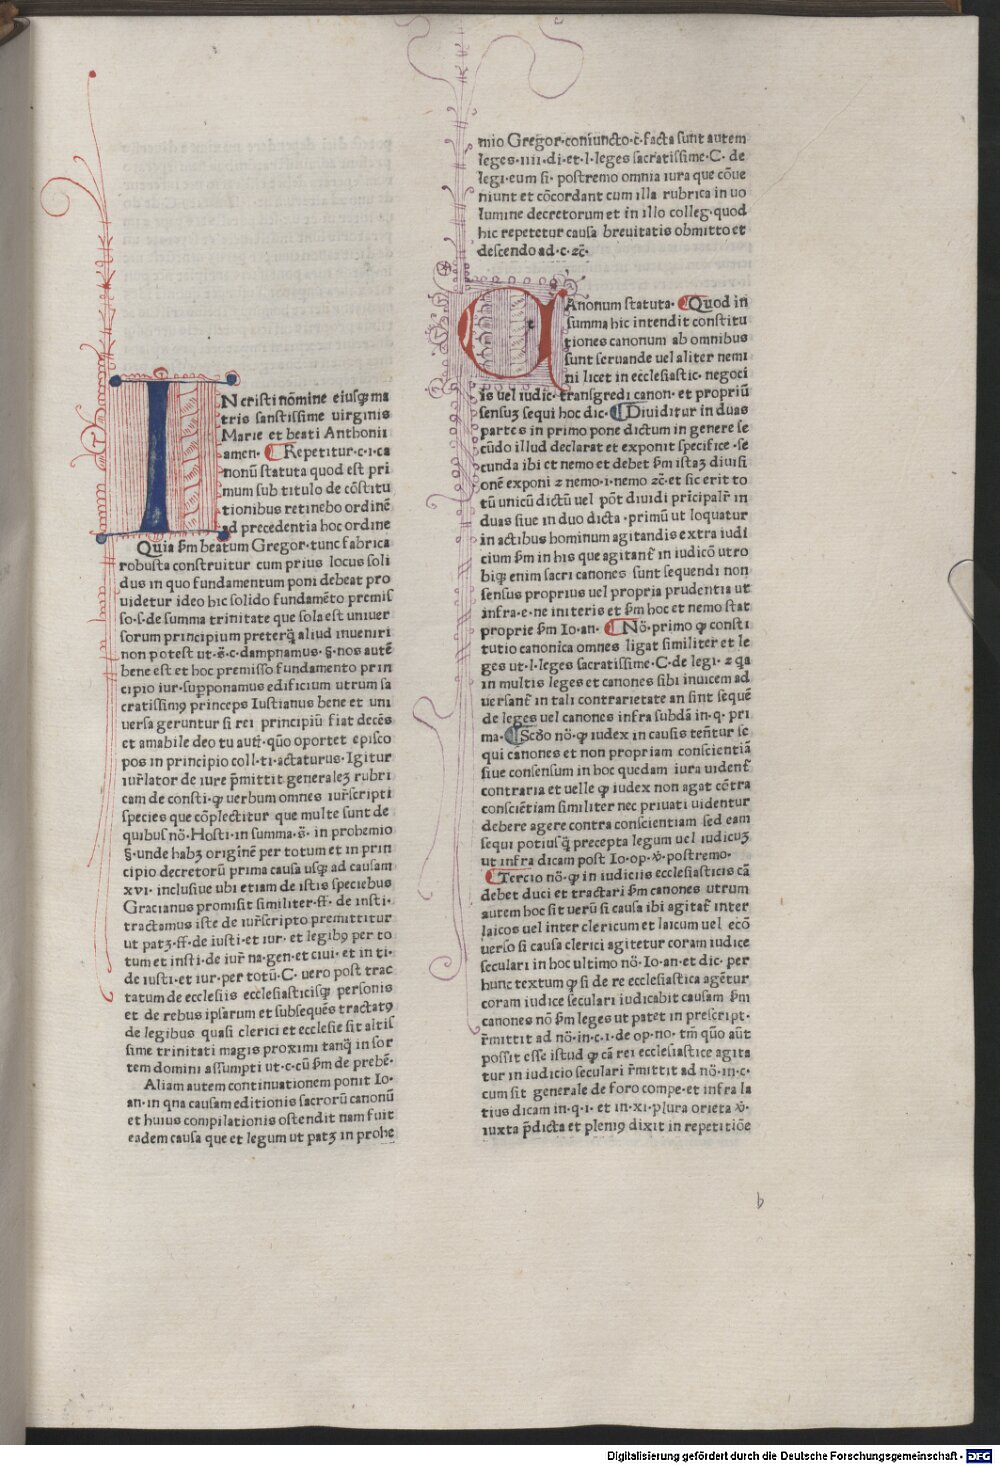 IN cristi nōmine eiusqȝ ma
tris sanstissime uirginis
Marie et beati Anthonii
amen. Repetitur·c·i·ca
nonū statuta quod est pri
mum sub titulo de cōstitu
tionibus retinebo ordinē
ad precedentia hoc ordine
Quia ẜm beatum Gregor·tunc fabrica
robusta construitur cum prius locus soli
dus in quo fundamentum poni debeat pro
uidetur ideo hic solido fundamēto premis
so·s·de summa trinitate que sola est uniuer
sorum principium preterq̄ aliud inueniri
non potest ut·ē·c·dampnamus·§·nos autē
bene est et hoc premisso fundamento prin
cipio iur·supponamus edificium utrum sa
cratissimꝰ princeps Iustianus bene et uni
uersa geruntur si rei principiū fiat decēs
et amabile deo tu aut̄·quō oportet episco
pos in principio coll·ti·actaturus·Igitur
iur̄lator de iure p̄mittit generaleȝ rubri
cam de consti·ꝙ uerbum omnes iur̄scripti
species que cōplectitur que multe sunt de
quibus nō·Hosti·in summa·ē·in prohemio
§·unde habȝ originē per totum et in prin
cipio decretorū prima causa usqȝ ad causam
xvi·inclusiue ubi etiam de istis speciebus
Gracianus promisit similiter·ff·de insti·
tractamus iste de iur̄scripto premittitur
ut patȝ·ff·de iusti·et iur·et legibꝰ per to
tum et insti·de iur̄ na·gen·et ciui·et in ti·
de iusti·et iur·per totū·C·uero post trac
tatum de ecclesiis ecclesiasticisqȝ personis
et de rebus ipsarum et subsequēs tractatꝰ
de legibus quasi clerici et ecclesie sit altis
sime trinitati magis proximi tanq̄ in sor
tem domini assumpti ut·c·cū ẜm de prebē·
Aliam autem continuationem ponit Io·
an·in qna causam editionis sacrorū canonū
et huius compilationis ostendit nam fuit
eadem causa que et legum ut patȝ in prohe
mio Gregor·coniuncto·c̄·facta sunt autem
leges·iiii·di·et·l·leges sacratissime·C·de
legi·eum si·postremo omnia iura que cōue
niunt et cōcordant cum illa rubrica in uo
lumine decretorum et in illo colleg·quod
hic repetetur causa breuitatis obmitto et
descendo ad·c·ꝛc̄·
CAnonum statuta· Quod in
summa hic intendit constitu
tiones canonum ab omnibus
sunt seruande uel aliter nemi
ni licet in ecclesiastic·negoci
is uel iudic·transgredi canon·et propriū
sensuȝ sequi hoc dic· Diuiditur in duas
partes in primo pone dictum in genere se
cūdo illud declarat et exponit specifice·se
cunda ibi et nemo et debet ẜm istaȝ diuisi
onē exponi ꝛ nemo·i·nemo ꝛc̄·et sic erit to
tū unicū dictū uel pōt diuidi prīcipalr̄ in
duas siue in duo dicta·primū ut loquatur
in actibus hominum agitandis extra iudi
cium ẜm in his que agitant̄ in iudicō utro
biqȝ enim sacri canones sunt sequendi non
sensus proprius uel propria prudentia ut
infra·e·ne initeris et ẜm hoc et nemo stat
proprie ẜm Io·an· Nō·primo ꝙ consti
tutio canonica omnes ligat similiter et le
ges ut·l·leges sacratissime·C·de legi·ꝛ qa
in multis leges et canones sibi inuicem ad
uersant̄ in tali contrarietate an sint sequē
de leges uel canones infra subdā in·q·pri
ma· Scdo nō·ꝙ iudex in causis tent̄ur se
qui canones et non propriam conscientiā
siue consensum in hoc quedam iura uident̄
contraria et uelle ꝙ iudex non agat cōtra
consciētiam similiter nec priuati uidentur
debere agere contra conscientiam sed eam
sequi potiusq̄ precepta legum uel iudicuȝ
ut infra dicam post Io·op·v̄·postremo·
Tercio nō·ꝙ in iudiciis ecclesiasticis cā
debet duci et tractari ẜm canones utrum
autem hoc sit uerū si causa ibi agitat̄ inter
laicos uel inter clericum et laicum uel ecō
uerso si causa clerici agitetur coram iudice
seculari in hoc ultimo nō·Io·an·et dic·per
hunc textum ꝙ si de re ecclesiastica agētur
coram iudice seculari iudicabit causam ẜm
canones nō ẜm leges ut patet in prescript·
r̄mittit ad nō·in·c·i·de op·no·tm̄ quō aūt
possit esse istud ꝙ cā rei ecclesiastice agita
tur in iudicio seculari r̄mittit ad nō·in·c·
cum sit generale de foro compe·et infra la
tius dicam in·q·i·et in·xi·plura orieta v̄·
iuxta p̄dicta et plenꝰ dixit in repetitiōe
b
Digitalisierung gefördert durch die Deutsche Forschungsgemeinschaft - DFG